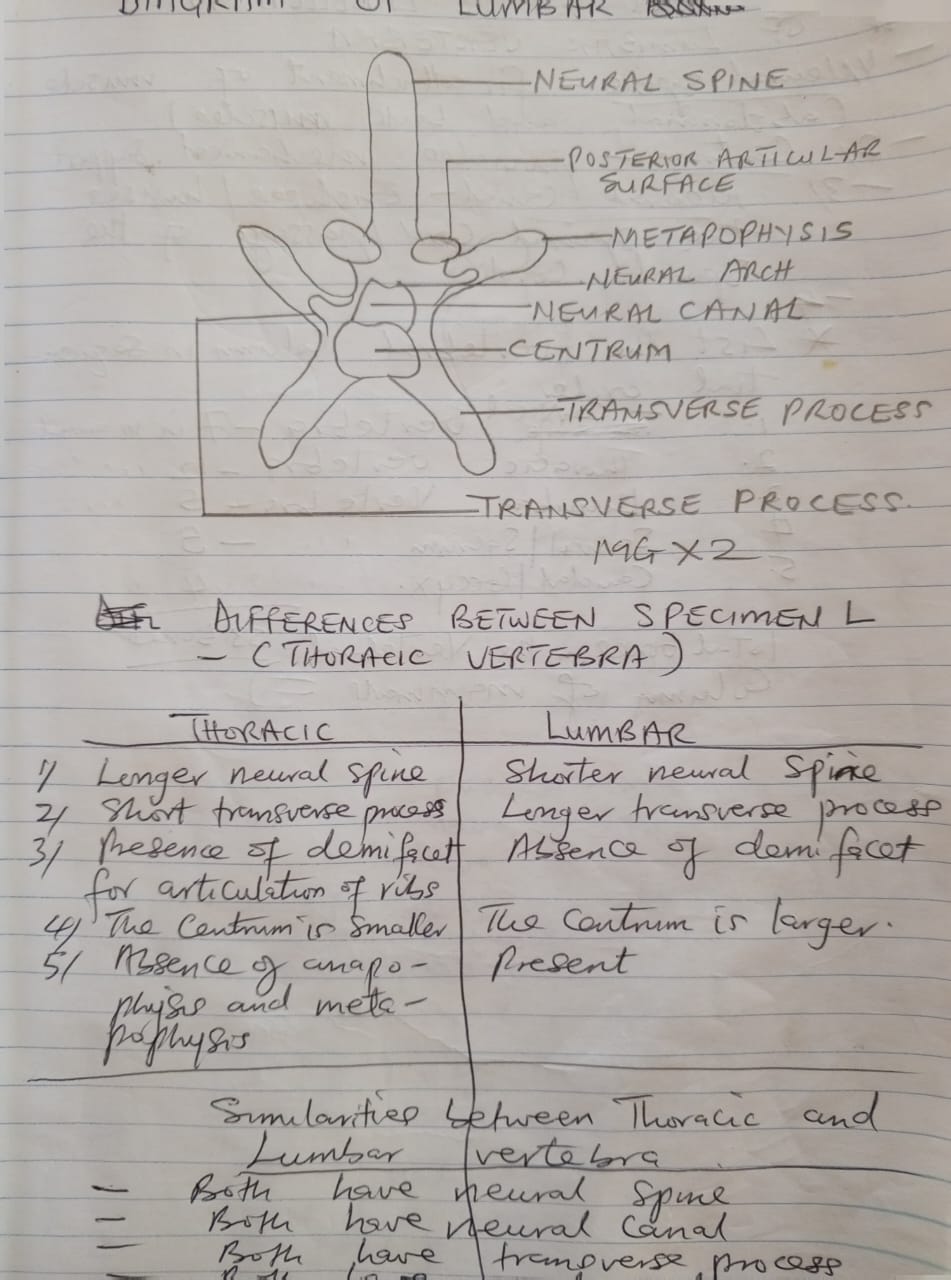 DIAGRAM OF LUMBAR
NEURAL SPINE
POSTERIOR ARTICULAR
SURFACE
METAPOPHYSIS
NEURAL ARCH
NEURAL CANAL
CENTRUM
TRANSVERSE PROCESS
TRANSVERSE PROCESS.
MG X 2
DIFFERENCES BETWEEN SPECIMEN L
- (THORACIC VERTEBRA)
THORACIC LUMBAR
1/ Longer neural spine Shorter neural Spine
2/ Short transverse process Longer transverse process
3/ Presence of demifacet Absence of demi facet
for articulation of ribs
4/ The Centrum is Smaller The Centrum is larger.
5/ Absence of anapo- Present
physis and meta-
pophysis
Similarities between Thoracic and
Lumbar vertebra
- Both have neural Spine
- Both have neural Canal
- Both have transverse process